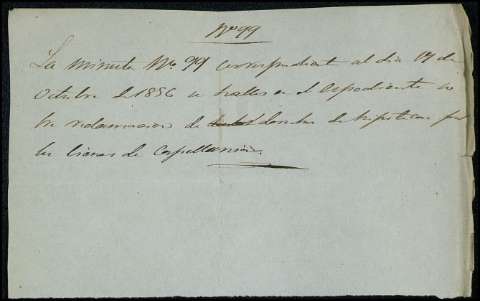 Nº 99
La minuta Nº 99 correspondiente al dia 17 de
Octubre de 1856 se halla en el Expediente so
bre reclamacion de derechos de hipotecas por
los bienes de Capellanias.